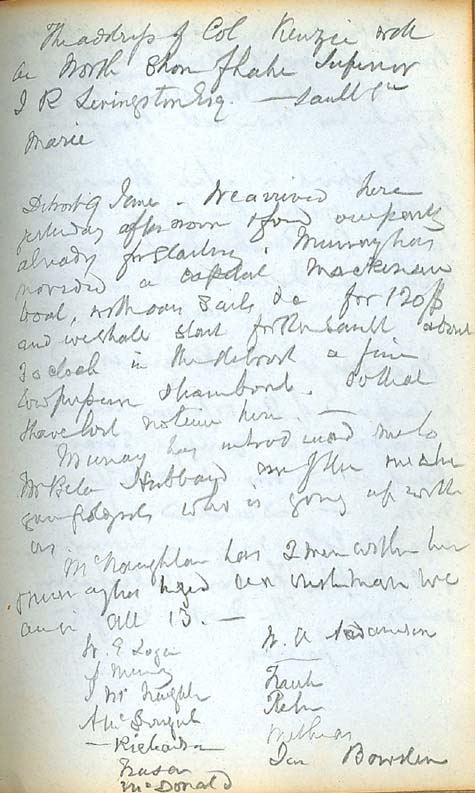 The address of Col Kenzie
on North Shore of Lake Superior
J R Livingston Esq. — Sault Ste
Marie
Detroit 9 June — We arrived here
yesterday afternoon & found our party
already for starting. Murray has
provided a capital Mackinaw
boat, with oars sails &c for 120$
and we shall start for the Sault about
3 oclock in the Detroit a fine
low pressure steamboat. So that
I have lost no time here. —
Murray has introduced me to
Mr Bela Hubbard one of the
geologists who is going up with
us.
McNaughton has 2 men with him
Murray has hired an Irishman we
are in all 13. —
W. E Logan
A Murray
J McNaughton
— Richardson
Fraser
McDonald
W. A Adamson
Frank
Peter
Jas Bowden